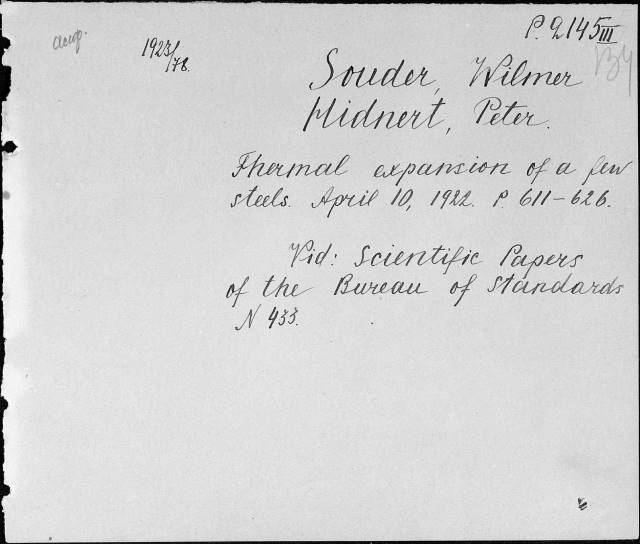 P. 2145 III
1923/178.
Souder, Wilmer
Hidnert, Peter.
Thermal expansion of a few
steels. April 10, 1922. P. 611-626.
Vid: Scientific Papers
of the Bureau of Standards
N 433.